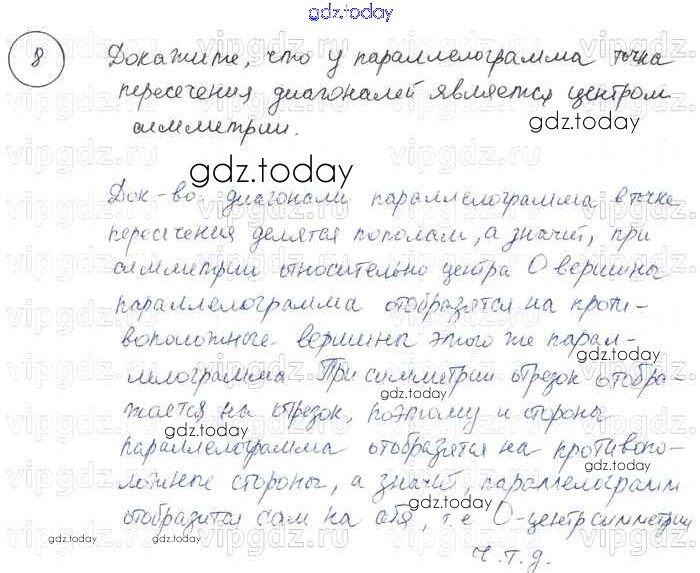 gdz.today
8 Докажите, что у параллелограмма точка
пересечения диагоналей является центром
симметрии.
gdz.today
Док-во: диагонали параллелограмма в точке
пересечения делятся пополам, а значит, при
симметрии относительно центра О вершины
параллелограмма отобразятся на проти-
воположные вершины этого же парал-
gdz.today
лелограмма. При симметрии отрезок отобра-
жается на отрезок, поэтому и стороны
gdz.today
параллелограмма отобразятся на противопо-
gdz.today
ложные стороны, а значит, параллелограмм
отобразится сам на себя, т.е О-центр симметрии
gdz.today
ч.т.д.
gdz.today